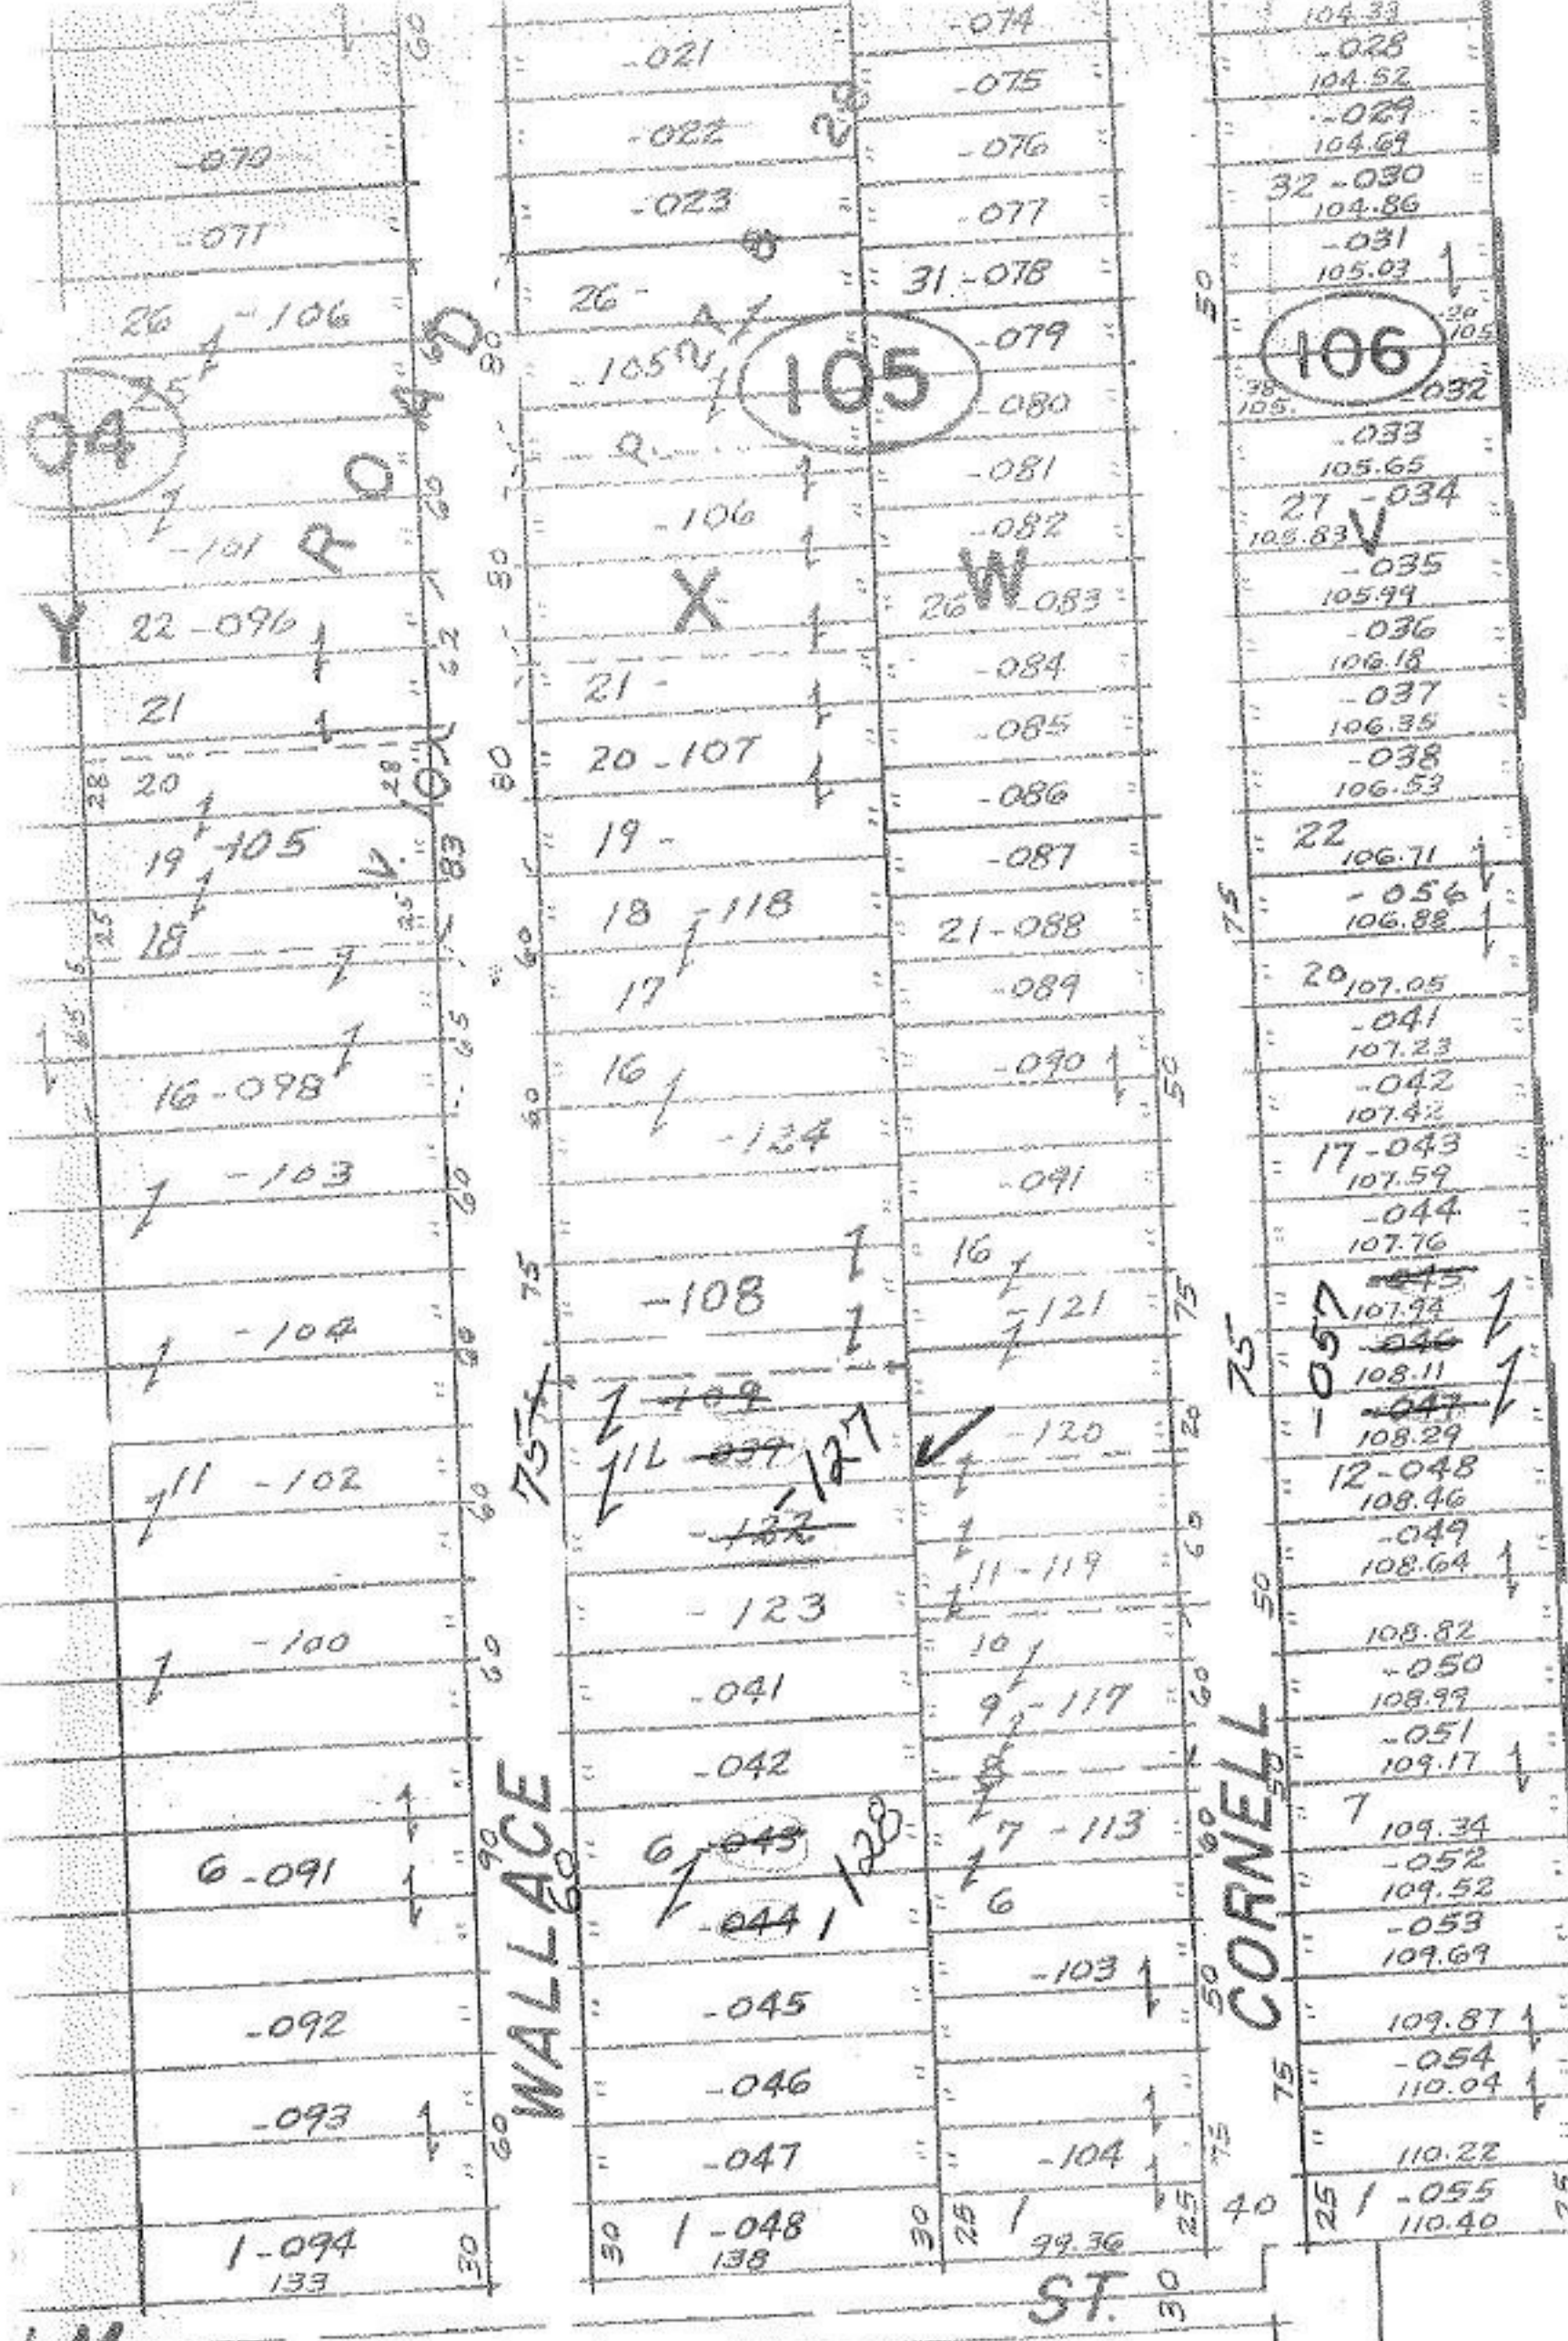 60
-070
-071
26 -106
25
04
-101
Y
22 -096
21
28 20 28
19 -105
25 18 25
65
16 -098
-103
-104
11 -102
-100
6 -091
-092
-093
1 -094
133
30
ROAD
60
62
83
65
60
60
60
60
90
60
WALLACE
80
80
80
60
60
75
75
60
-021
-022
-023
26 -
-105
-106
X
21 -
20 -107
19 -
18 -118
17
16
-124
-108
-109
-039
-127
-122
-123
-041
-042
6 -043
128
-044
-045
-046
-047
1 -048
138
30
30
105
-074
-075
-076
-077
31 -078
-079
-080
-081
-082
W
26 -083
-084
-085
-086
-087
21 -088
-089
-090
-091
16
-121
-120
11 -119
10
9 -117
8
7 -113
6
-103
-104
1
99.36
25
25
50
75
20
60
60
60
50
75
40
CORNELL
50
75
75
50
50
75
104.33
-028
104.52
-029
104.69
32 -030
104.86
-031
105.03
106
-032
-033
105.65
27 -034
105.83
V
-035
105.99
-036
106.18
-037
106.35
-038
106.53
22
106.71
-056
106.88
20
107.05
-041
107.23
-042
107.42
17 -043
107.59
-044
107.76
-045
107.94
-057
-046
108.11
-047
108.29
12 -048
108.46
-049
108.64
108.82
-050
108.99
-051
109.17
7
109.34
-052
109.52
-053
109.69
109.87
-054
110.04
110.22
25 1 -055 25
110.40
ST.
30